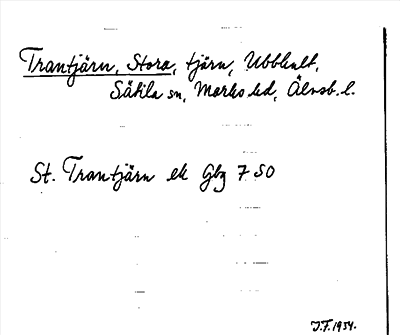 Trantjärn, Stora, tjärn, Ubbhult,
Sätila sn, Marks hd, Älvsb. l.
St. Trantjärn ek Gbg 7 SO
J.F. 1954.